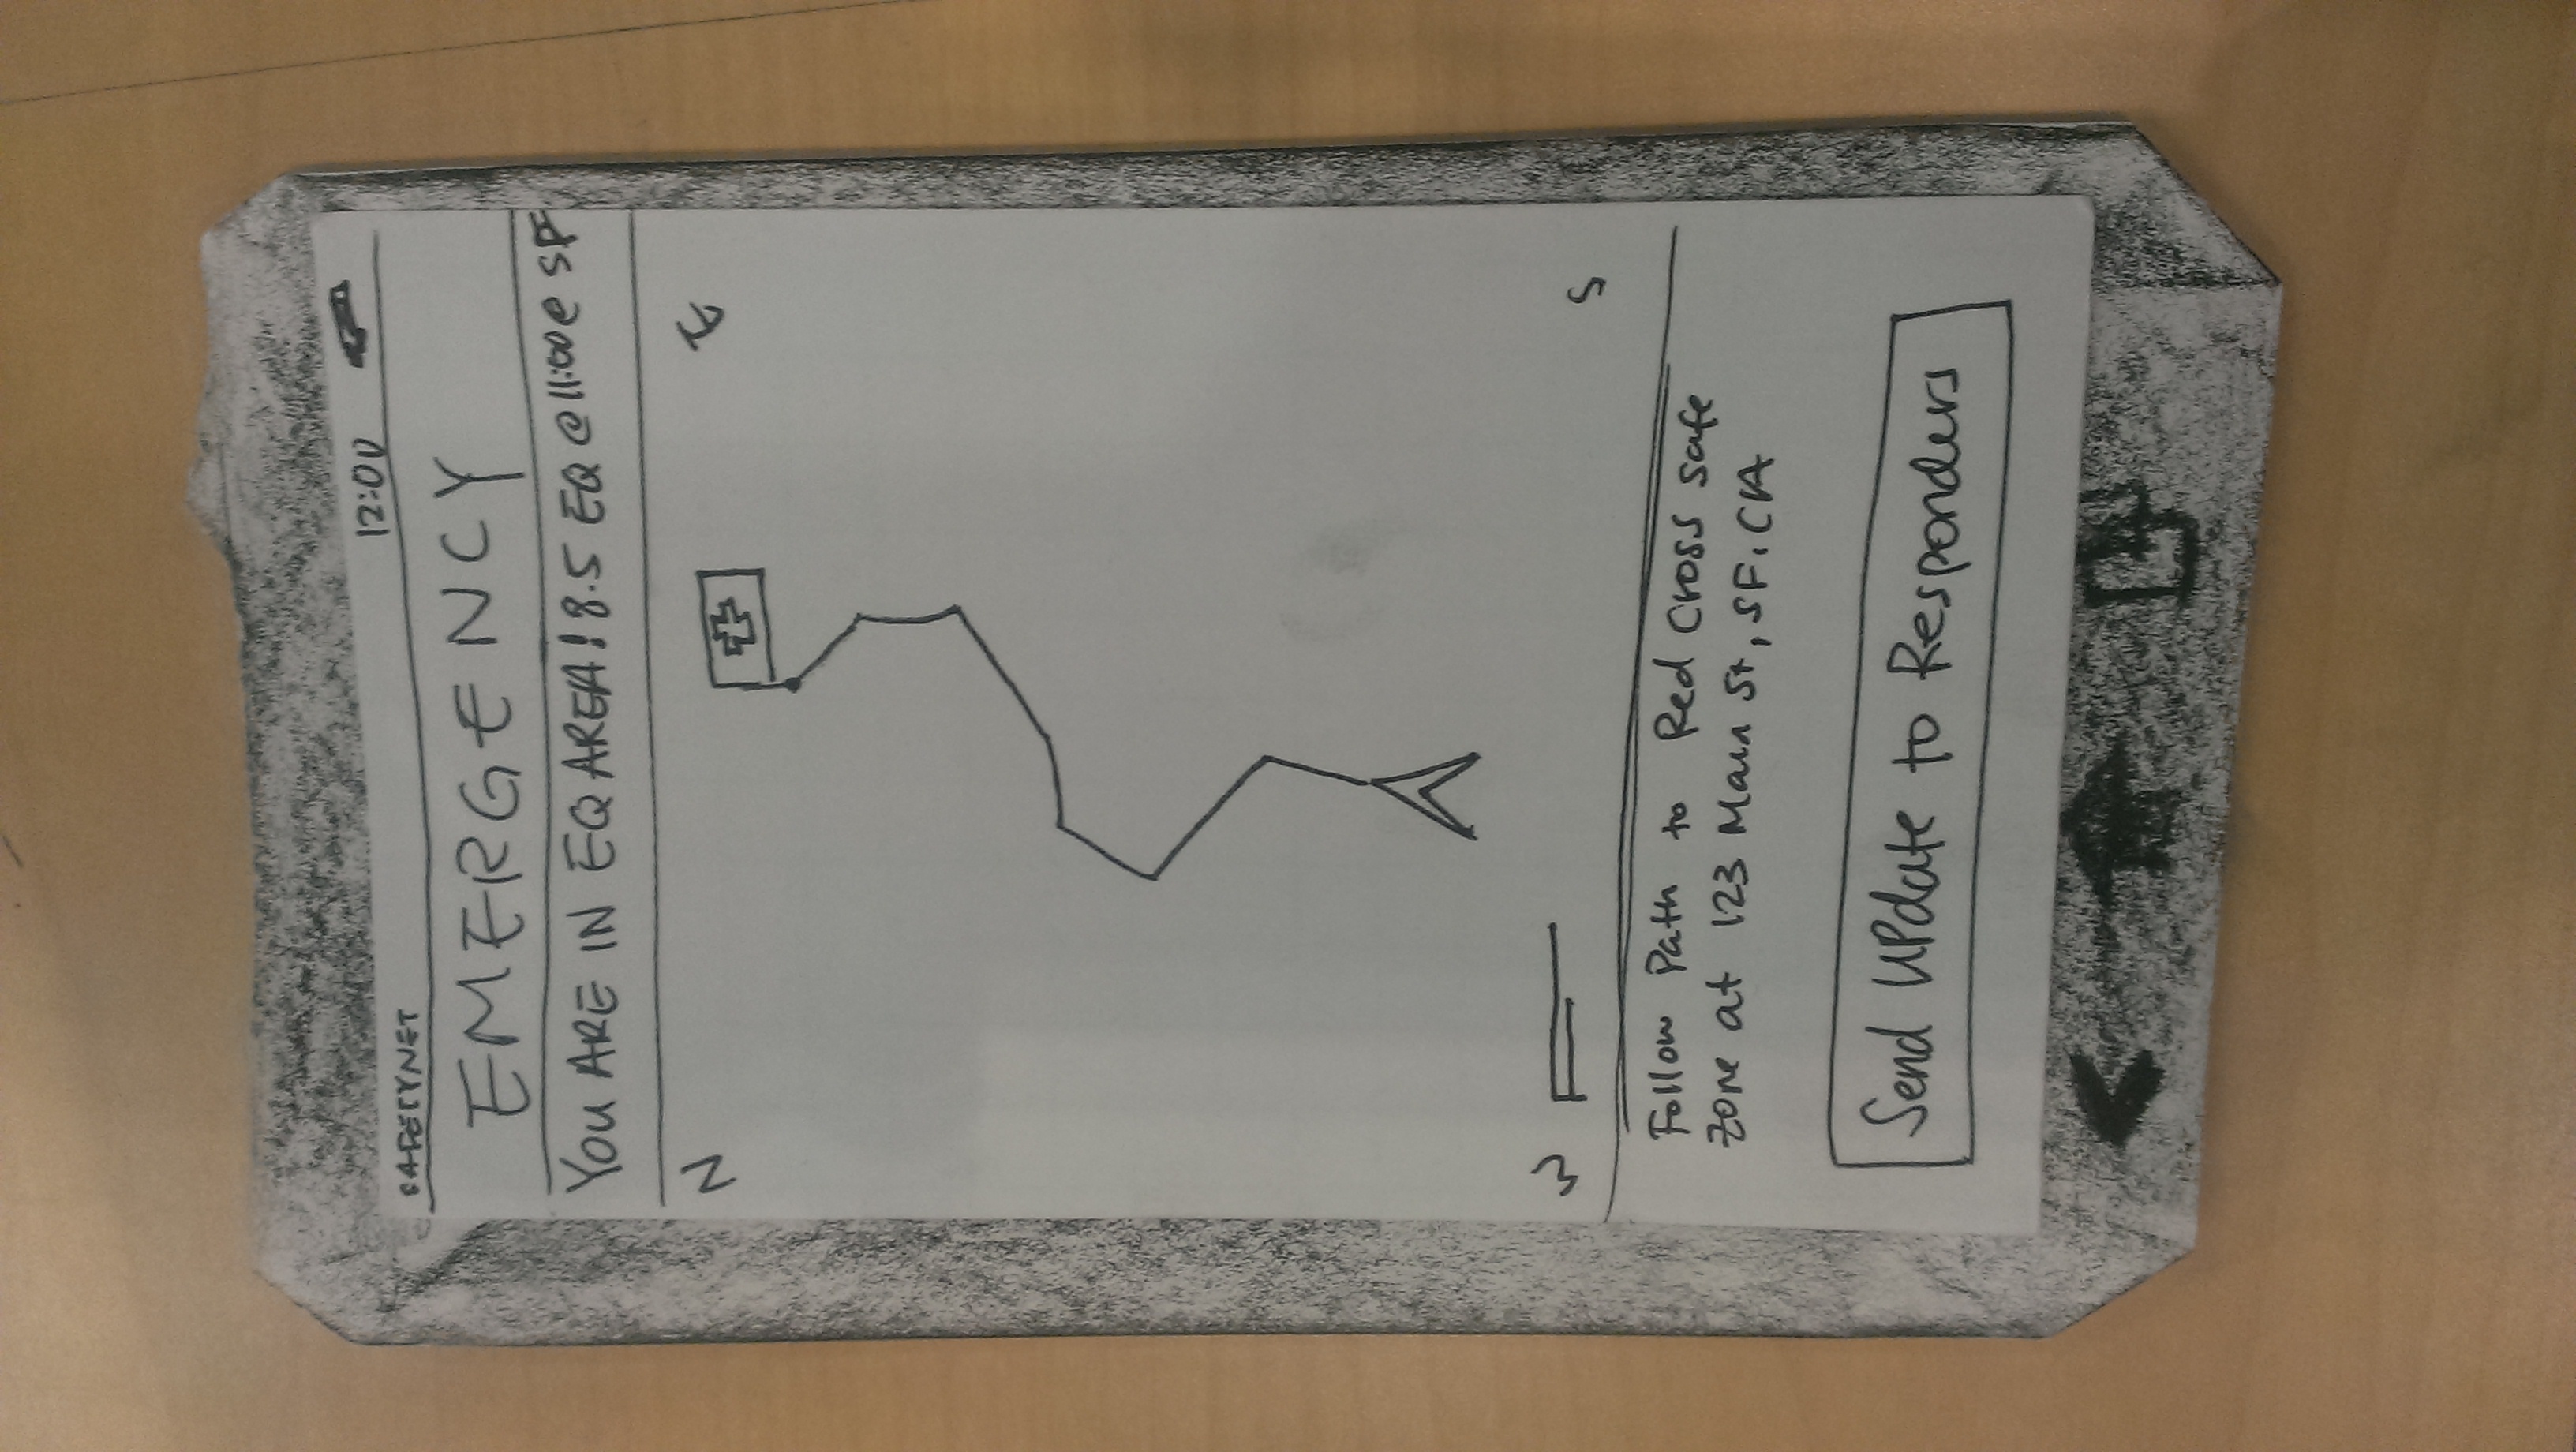 SAFETYNET 12:00
EMERGENCY
YOU ARE IN EQ AREA! 8.5 EQ @ 11:00 @ SF
N E
W S
Follow Path to Red Cross Safe
zone at 123 Main St, SF. CA
Send UPdate to Responders